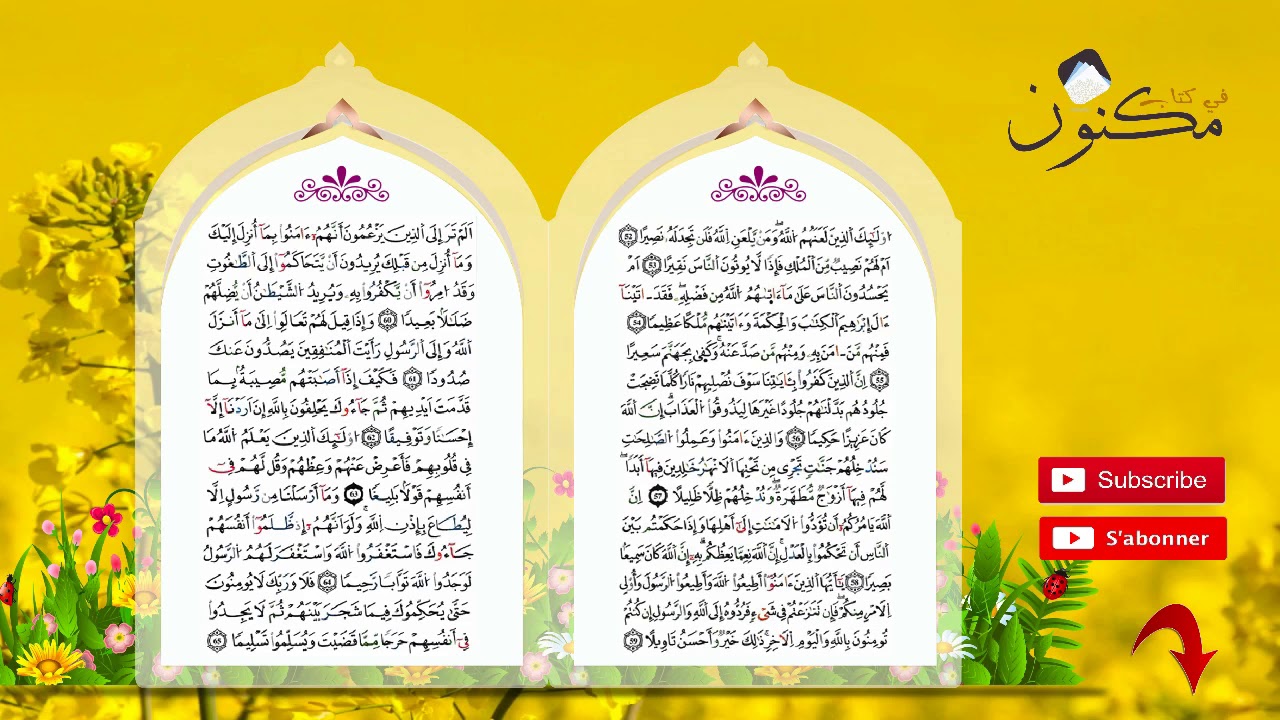 في كتاب
مكنون
ا۟وْلَٰٓئِكَ اَ۬لذِينَ لَعَنَهُمُ اُ۬للَّهُۖ وَمَنْ يَّلْعَنِ اِ۬للَّهُ فَلَن تَجِدَ لَهُۥ نَصِيراًۖ 52
اَمْ لَهُمْ نَصِيبٞ مِّنَ اَ۬لْمُلْكِ فَإِذاٗ لَّا يُوتُونَ اَ۬لنَّاسَ نَقِيراًۖ 53 اَمْ
يَحْسُدُونَ اَ۬لنَّاسَ عَلَىٰ مَآ ءَات۪يٰهُمُ اُ۬للَّهُ مِن فَضْلِهِۦۖ فَقَدَ اٰتَيْنَآ
ءَالَ إِبْرَٰهِيمَ اَ۬لْكِتَٰبَ وَالْحِكْمَةَ وَءَاتَيْنَٰهُم مُّلْكاً عَظِيماٗۖ 54
فَمِنْهُم مَّنَ اٰمَنَ بِهِۦ وَمِنْهُم مَّن صَدَّ عَنْهُۖ وَكَف۪يٰ بِجَهَنَّمَ سَعِيراًۖ
55 اِنَّ اَ۬لذِينَ كَفَرُواْ بِـَٔايَٰتِنَا سَوْفَ نُصْلِيهِمْ نَاراٗ كُلَّمَا نَضِجَتْ
جُلُودُهُم بَدَّلْنَٰهُمْ جُلُوداً غَيْرَهَا لِيَذُوقُواْ اُ۬لْعَذَابَۖ إِنَّ اَ۬للَّهَ
كَانَ عَزِيزاً حَكِيماٗۖ 56 وَالذِينَ ءَامَنُواْ وَعَمِلُواْ اُ۬لصَّٰلِحَٰتِ
سَنُدْخِلُهُمْ جَنَّٰتٖ تَجْرِے مِن تَحْتِهَا اَ۬لَانْهَٰرُ خَٰلِدِينَ فِيهَآ أَبَداٗۖ
لَّهُمْ فِيهَآ أَزْوَٰجٞ مُّطَهَّرَةٞۖ وَنُدْخِلُهُمْ ظِلّاٗ ظَلِيلاًۖ 57 اِنَّ
اَ۬للَّهَ يَامُرُكُمُۥٓ أَن تُؤَدُّواْ اُ۬لَامَٰنَٰتِ إِلَىٰٓ أَهْلِهَا وَإِذَا حَكَمْتُم بَيْنَ
اَ۬لنَّاسِ أَن تَحْكُمُواْ بِالْعَدْلِۖ إِنَّ اَ۬للَّهَ نِعِمَّا يَعِظُكُم بِهِۦٓۖ إِنَّ اَ۬للَّهَ كَانَ سَمِيعاَۢ
بَصِيراٗۖ 58 يَٰٓأَيُّهَا اَ۬لذِينَ ءَامَنُوٓاْ أَطِيعُواْ اُ۬للَّهَ وَأَطِيعُواْ اُ۬لرَّسُولَ وَأُوْلِے
اِ۬لَامْرِ مِنكُمْۖ فَإِن تَنَٰزَعْتُمْ فِے شَےْءٖ فَرُدُّوهُ إِلَى اَ۬للَّهِ وَالرَّسُولِ إِن كُنتُمْ
تُومِنُونَ بِاللَّهِ وَالْيَوْمِ اِ۬لَاخِرِۖ ذَٰلِكَ خَيْرٞ وَأَحْسَنُ تَاوِيلاًۖ 59
اَلَمْ تَرَ إِلَى اَ۬لذِينَ يَزْعُمُونَ أَنَّهُمُۥٓ ءَامَنُواْ بِمَآ أُنزِلَ إِلَيْكَ
وَمَآ أُنزِلَ مِن قَبْلِكَ يُرِيدُونَ أَنْ يَّتَحَاكَمُوٓاْ إِلَى اَ۬لطَّٰغُوتِ
وَقَدُ ا۟مِرُوٓاْ أَنْ يَّكْفُرُواْ بِهِۦۖ وَيُرِيدُ اُ۬لشَّيْطَٰنُ أَنْ يُّضِلَّهُمْ
ضَلَٰلاَۢ بَعِيداٗۖ 60 وَإِذَا قِيلَ لَهُمْ تَعَالَوِاْ اِلَىٰ مَآ أَنزَلَ
اَ۬للَّهُ وَإِلَى اَ۬لرَّسُولِ رَأَيْتَ اَ۬لْمُنَٰفِقِينَ يَصُدُّونَ عَنكَ
صُدُوداٗۖ 61 فَكَيْفَ إِذَآ أَصَٰبَتْهُم مُّصِيبَةُۢ بِمَا
قَدَّمَتَ اَيْدِيهِمْ ثُمَّ جَآءُوكَ يَحْلِفُونَ بِاللَّهِ إِنَ اَرَدْنَآ إِلَّآ
إِحْسَٰناٗ وَتَوْفِيقاًۖ 62 ا۟وْلَٰٓئِكَ اَ۬لذِينَ يَعْلَمُ اُ۬للَّهُ مَا
فِے قُلُوبِهِمْ فَأَعْرِضْ عَنْهُمْ وَعِظْهُمْ وَقُل لَّهُمْ فِےٓ
أَنفُسِهِمْ قَوْلاَۢ بَلِيغاٗۖ 63 وَمَآ أَرْسَلْنَا مِن رَّسُولٍ اِلَّا
لِيُطَاعَ بِإِذْنِ اِ۬للَّهِۖ وَلَوَ اَنَّهُمُۥٓ إِذ ظَّلَمُوٓاْ أَنفُسَهُمْ
جَآءُوكَ فَاسْتَغْفَرُواْ اُ۬للَّهَ وَاسْتَغْفَرَ لَهُمُ اُ۬لرَّسُولُ
لَوَجَدُواْ اُ۬للَّهَ تَوَّاباٗ رَّحِيماٗۖ 64 فَلَا وَرَبِّكَ لَا يُومِنُونَ
حَتَّىٰ يُحَكِّمُوكَ فِيمَا شَجَرَ بَيْنَهُمْ ثُمَّ لَا يَجِدُواْ
فِےٓ أَنفُسِهِمْ حَرَجاٗ مِّمَّا قَضَيْتَ وَيُسَلِّمُواْ تَسْلِيماٗۖ 65
Subscribe
S'abonner